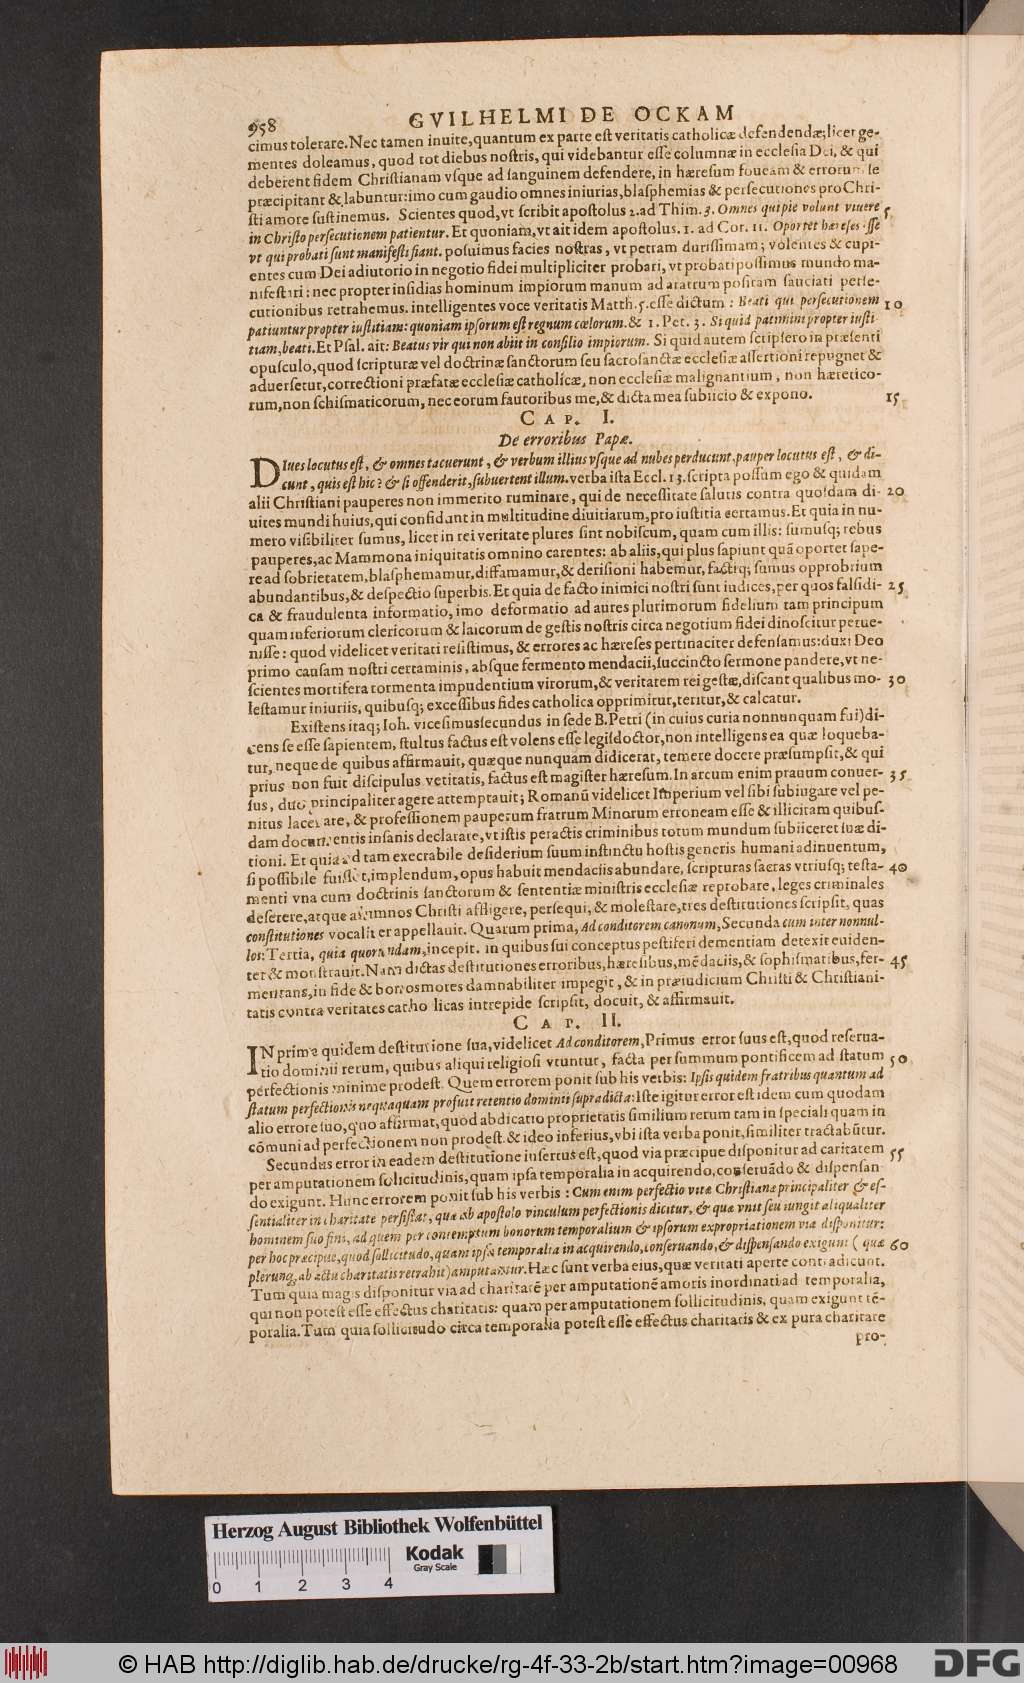 958
GVILHELMI DE OCKAM
cimus tolerare. Nec tamen inuite, quantum ex parte est veritatis catholicæ defendendæ; licet ge-
mentes doleamus, quod tot diebus nostris, qui videbantur esse columnæ in ecclesia Dei, & qui
deberent fidem Christianam vsque ad sanguinem defendere, in hæresum foueam & errorum se
præcipitant & labuntur: imo cum gaudio omnes iniurias, blasphemias & persecutiones pro Chri-
sti amore sustinemus. Scientes quod, vt scribit apostolus 2. ad Thim. 3. Omnes qui pie volunt viuere 5
in Christo persecutionem patientur. Et quoniam, vt ait idem apostolus. 1. ad Cor. 11. Oportet hæreses esse
vt qui probati sunt manifesti fiant. posuimus facies nostras, vt petram durissimam; volentes & cupi-
entes cum Dei adiutorio in negotio fidei multipliciter probari, vt probati possimus mundo ma-
nifestari: nec propter insidias hominum impiorum manum ad aratrum positam sauciati perse-
cutionibus retrahemus. intelligentes voce veritatis Matth. 5. esse dictum: Beati qui persecutionem 10
patiuntur propter iustitiam: quoniam ipsorum est regnum cœlorum. & 1. Pet. 3. Si quid patimini propter iusti
tiam, beati. Et Psal. ait: Beatus vir qui non abiit in consilio impiorum. Si quid autem scripsero in præsenti
opusculo, quod scripturæ vel doctrinæ sanctorum seu sacrosanctæ ecclesiæ assertioni repugnet &
aduersetur, correctioni præfatæ ecclesiæ catholicæ, non ecclesiæ malignantium, non hæretico-
rum, non schismaticorum, nec eorum fautoribus me, & dicta mea subiicio & expono. 15
CAP. I.
De erroribus Papæ.
DIues locutus est, & omnes tacuerunt, & verbum illius vsque ad nubes perducunt. pauper locutus est, & di-
cunt, quis est hic? & si offenderit, subuertent illum. verba ista Eccl. 13. scripta possum ego & quidam
alii Christiani pauperes non immerito ruminare, qui de necessitate salutis contra quosdam di- 20
uites mundi huius, qui confidunt in multitudine diuitiarum, pro iustitia certamus. Et quia in nu-
mero visibiliter sumus, licet in rei veritate plures sint nobiscum, quam cum illis: sumusq; rebus
pauperes, ac Mammona iniquitatis omnino carentes: ab aliis, qui plus sapiunt quã oportet sape-
re ad sobrietatem, blasphemamur, diffamamur, & derisioni habemur, factiq; sumus opprobrium
abundantibus, & despectio superbis. Et quia de facto inimici nostri sunt iudices, per quos falsidi- 25
ca & fraudulenta informatio, imo deformatio ad aures plurimorum fidelium tam principum
quam inferiorum clericorum & laicorum de gestis nostris circa negotium fidei dinoscitur perue-
nisse: quod videlicet veritati resistimus, & errores ac hæreses pertinaciter defensamus: duxi Deo
primo causam nostri certaminis, absque fermento mendacii, succincto sermone pandere, vt ne-
scientes mortifera tormenta impudentium virorum, & veritatem rei gestæ, discant qualibus mo- 30
lestamur iniuriis, quibusq; excessibus fides catholica opprimitur, teritur, & calcatur.
Existens itaq; Ioh. vicesimussecundus in sede B. Petri (in cuius curia nonnunquam fui) di-
cens se esse sapientem, stultus factus est volens esse legisdoctor, non intelligens ea quæ loqueba-
tur, neque de quibus affirmauit, quæque nunquam didicerat, temere docere præsumpsit, & qui
prius non fuit discipulus veritatis, factus est magister hæresum. In arcum enim prauum conuer- 35
sus, duo principaliter agere attemptauit; Romanũ videlicet Imperium vel sibi subiugare vel pe-
nitus lacerare, & professionem pauperum fratrum Minorum erroneam esse & illicitam quibus-
dam documentis insanis declarare, vt istis peractis criminibus totum mundum subiiceret suæ di-
tioni. Et quia ad tam execrabile desiderium suum instinctu hostis generis humani adinuentum,
si possibile fuisset, implendum, opus habuit mendaciis abundare, scripturas sacras vtriusq; testa- 40
menti vna cum doctrinis sanctorum & sententiæ ministris ecclesiæ reprobare, leges criminales
deserere, atque alumnos Christi affligere, persequi, & molestare, tres destitutiones scripsit, quas
constitutiones vocaliter appellauit. Quarum prima, Ad conditorem canonum, Secunda cum inter nonnul-
los: Tertia, quia quorundam, incepit. in quibus sui conceptus pestiferi dementiam detexit euiden-
ter & monstrauit. Nam dictas destitutiones erroribus, hæresibus, mẽdaciis, & sophismatibus, fer- 45
mentans, in fide & bonos mores damnabiliter impegit, & in præiudicium Christi & Christiani-
tatis contra veritates catholicas intrepide scripsit, docuit, & affirmauit.
CAP. II.
IN prima quidem destitutione sua, videlicet Ad conditorem, Primus error suus est, quod reserua-
tio dominii rerum, quibus aliqui religiosi vtuntur, facta per summum pontificem ad statum 50
perfectionis minime prodest. Quem errorem ponit sub his verbis: Ipsis quidem fratribus quantum ad
statum perfectionis nequaquam profuit retentio dominii supradicta: Iste igitur error est idem cum quodam
alio errore suo, quo affirmat, quod abdicatio proprietatis similium rerum tam in speciali quam in
cõmuni ad perfectionem non prodest. & ideo inferius, vbi ista verba ponit, similiter tractabũtur.
Secundus error in eadem destitutione insertus est, quod via præcipue disponitur ad caritatem 55
per amputationem sollicitudinis, quam ipsa temporalia in acquirendo, conseruãdo & dispensan-
do exigunt. Hunc errorem ponit sub his verbis: Cum enim perfectio vitæ Christianæ principaliter & es-
sentialiter in charitate persistat, quæ ab apostolo vinculum perfectionis dicitur, & quæ vnit seu iungit aliqualiter
hominem suo fini, ad quem per contemptum bonorum temporalium & ipsorum expropriationem via disponitur:
per hoc præcipue, quod sollicitudo, quam ipsa temporalia in acquirendo, conseruando, & dispensando exigunt (quæ 60
plerunq; ab actu charitatis retrahit) amputatur. Hæc sunt verba eius, quæ veritati aperte contradicunt.
Tum quia magis disponitur via ad charitatẽ per amputationẽ amoris inordinati ad temporalia,
qui non potest esse effectus charitatis: quam per amputationem sollicitudinis, quam exigunt tẽ-
poralia. Tum quia sollicitudo circa temporalia potest esse effectus charitatis & ex pura charitate
pro-
Herzog August Bibliothek Wolfenbüttel
Kodak
Gray Scale
0 1 2 3 4
© HAB http://diglib.hab.de/drucke/rg-4f-33-2b/start.htm?image=00968
DFG